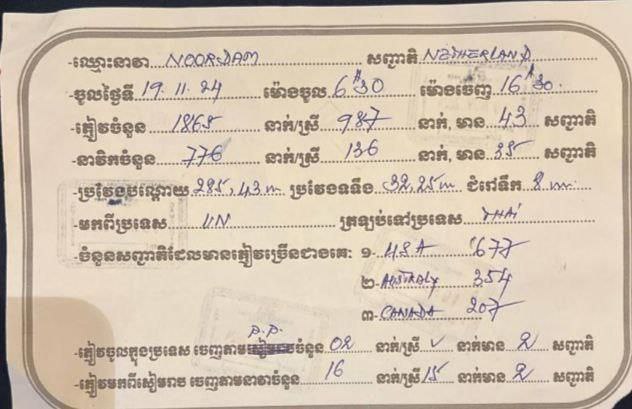 -ឈ្មោះនាវា NOORDAM សញ្ជាតិ NETHERLAND
-ចូលថ្ងៃទី 19.11.24 ម៉ោងចូល 6H30 ម៉ោងចេញ 16H30
-ភ្ញៀវចំនួន 1865 នាក់/ស្រី 987 នាក់, មាន 43 សញ្ជាតិ
-នាវិកចំនួន 776 នាក់/ស្រី 136 នាក់, មាន 35 សញ្ជាតិ
-ប្រវែងបណ្តោយ 285,43m ប្រវែងទទឹង 32,25m ជំរៅទឹក 8m
-មកពីប្រទេស VN ត្រឡប់ទៅប្រទេស THAI
-ចំនួនសញ្ជាតិដែលមានភ្ញៀវច្រើនជាងគេ: ១-USA 677
២-AUSTRALY 354
៣-CANADA 207
-ភ្ញៀវចូលក្នុងប្រទេស ចេញតាម P.P. ចំនួន 02 នាក់/ស្រី នាក់មាន 2 សញ្ជាតិ
-ភ្ញៀវមកពីសៀមរាប ចេញតាមនាវាចំនួន 16 នាក់/ស្រី 15 នាក់មាន 2 សញ្ជាតិ